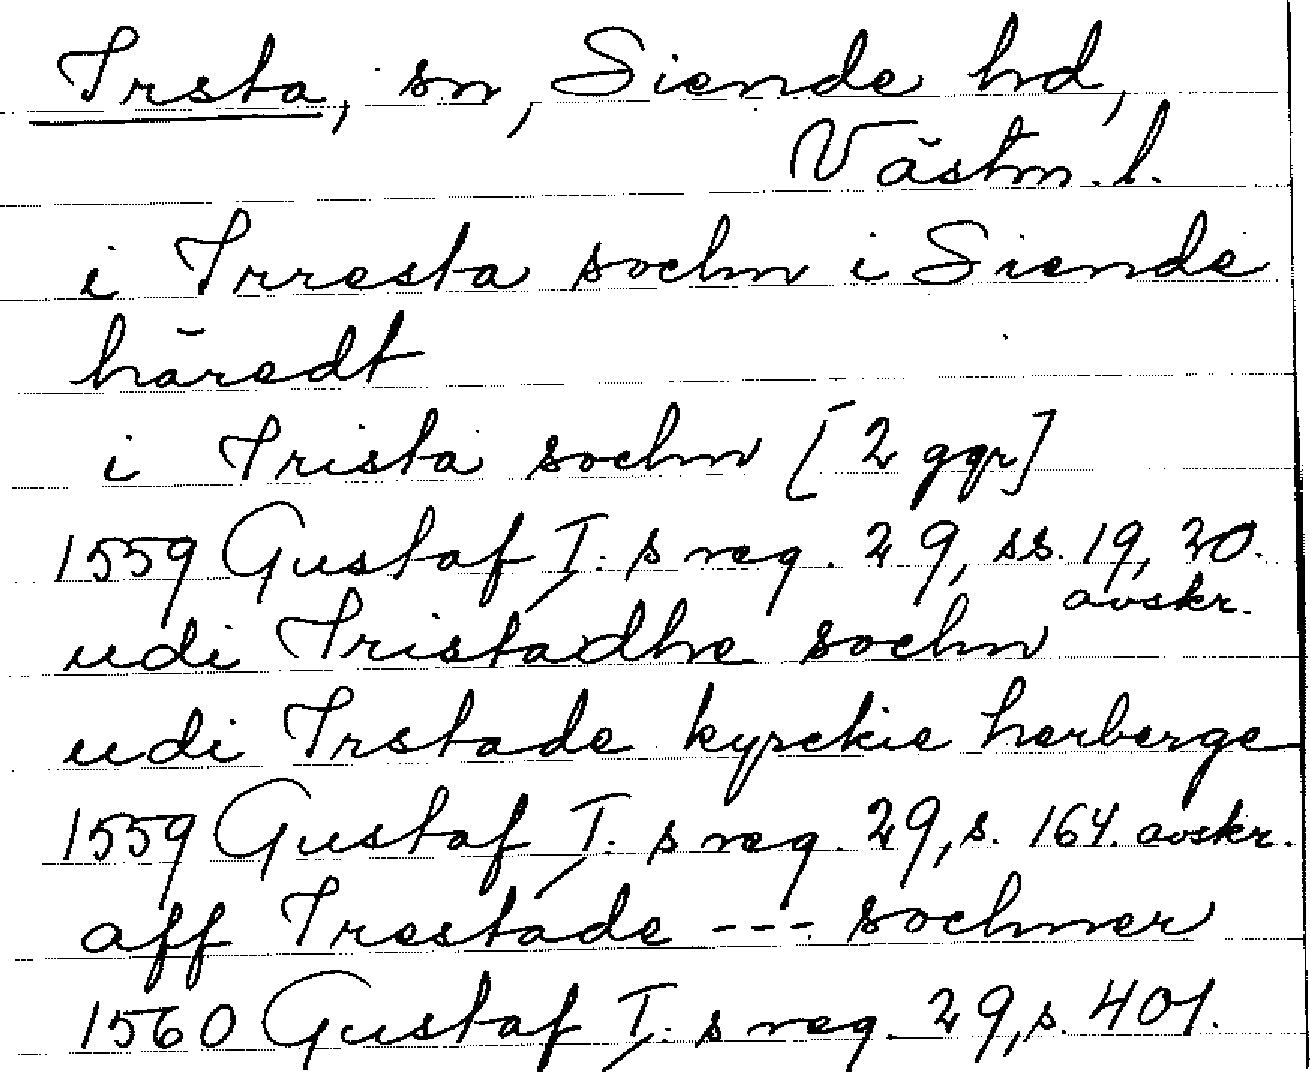 Irsta, sn, Siende hd,
Västm. l.
i Irresta sochn i Siende
häredt
i Irista sochn [2 ggr]
1559 Gustaf I:s reg. 29, ss. 19, 20.
avskr.
udi Iristadhe sochn
udi Irstade kyrckie herberge
1559 Gustaf I:s reg. 29, s. 164. avskr.
aff Irestade --- sochner
1560 Gustaf I:s reg. 29, s. 401.